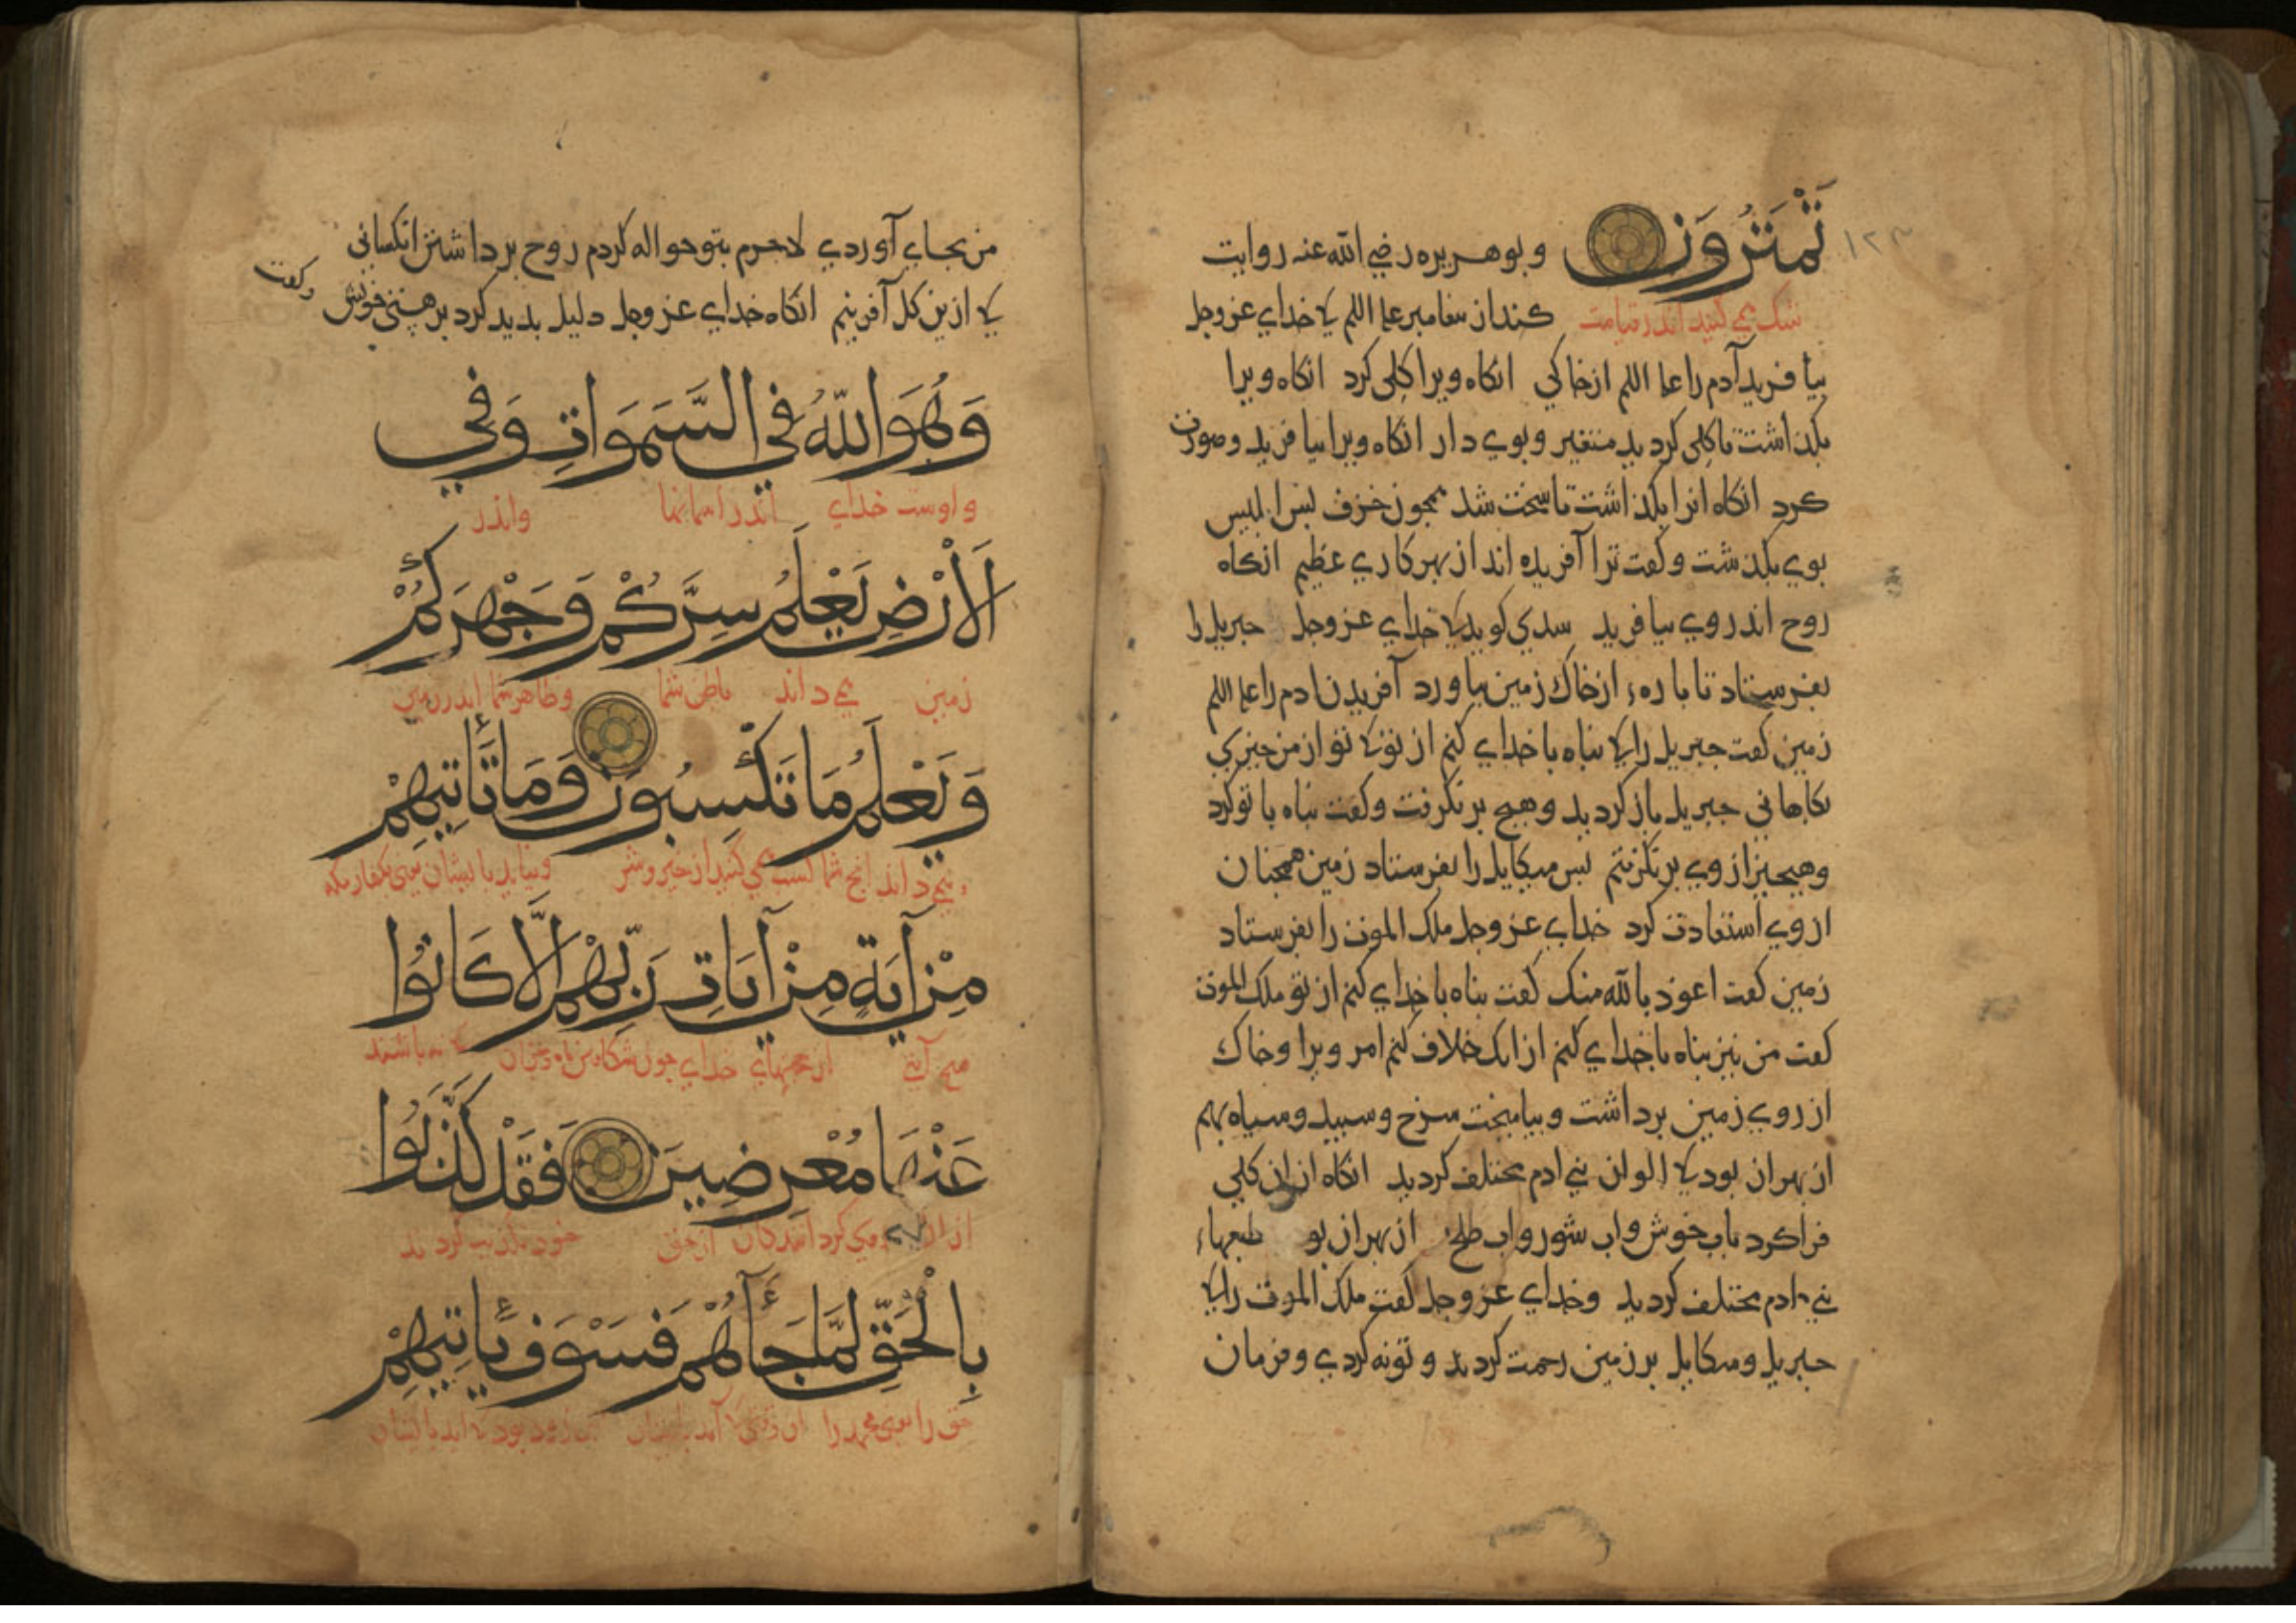 تَمْتَرُونَ وبوهریره رضی الله عنه روایت
۱۲۳
شک می کنید اندر قیامت
کند از پیغامبر علیه السلم که خدای عز وجل
بیافرید آدم را علیه السلم از خاکی انکاه ویرا کلی کرد انکاه ویرا
بکذاشت تا کلی کردید متغیر وبوی دار انکاه ویرا بیافرید وصورت
کرد انکاه انرا بکذاشت تا سخت شد همچون خزف بس ابلیس
بوی بکذشت وکفت ترا آفریده اند از بهر کاری عظیم انکاه
روح اندر وی بیافرید سدی کوید که خدای عز وجل جبریل را
بفرستاد تا باره از خاک زمین بیاورد آفریدن ادم را علیه السلم
زمین کفت جبریل را که بناه با خدای کنم از تو که تو از من چیزی
بکاهانی جبریل باز کردید وهیچ برنکرفت وکفت بناه با تو کرد
وهیچیز از وی برنکرفتم بس میکایل را بفرستاد زمین همچنان
از وی استعاذت کرد خدای عز وجل ملک الموت را بفرستاد
زمین کفت اعوذ بالله منک کفت بناه با خدای کنم از تو ملک الموت
کفت من نیز بناه با خدای کنم از انک خلاف کنم امر ویرا وخاک
از روی زمین برداشت وبیامیخت سرخ وسبید وسیاه بهم
از بهر ان بود که الوان بنی ادم مختلف کردید انکاه از ان کلی
فرا کرد باب خوش واب شور واب طلخ از بهر ان بو طبعهاء
بنی ادم مختلف کردید وخدای عز وجل کفت ملک الموت را که
جبریل ومیکایل بر زمین رحمت کردند وتو نه کردی وفرمان
من بجای آوردی لاجرم بتو حواله کردم روح برداشتن انکسانی
که از ین کل آفرینم انکاه خدای عز وجل دلیل بدید کرد بر هستی خویش
وکفت
وَهُوَ اللّٰهُ فِي السَّمَوَاتِ وَفِي
واوست خدای اندر اسمانها واندر
الْأَرْضِ يَعْلَمُ سِرَّكُمْ وَجَهْرَكُمْ
زمین می داند باطن شما وظاهر شما اندر زمین
وَيَعْلَمُ مَا تَكْسِبُونَ وَمَا تَأْتِيهِمْ
ومی داند انچ شما کسب می کنید از خیر وشر ونیاید بایشان یعنی بکفار مکه
مِنْ آيَةٍ مِنْ آيَاتِ رَبِّهِمْ إِلَّا كَانُوا
هیچ آیتی از حجتهای خدای چون شکافتن ماه که نه باشند
عَنْهَا مُعْرِضِينَ فَقَدْ كَذَّبُوا
از ان روی کردانندکان از حق خود تکذیب کردند
بِالْحَقِّ لَمَّا جَاءَهُمْ فَسَوْفَ يَأْتِيهِمْ
حق را یعنی محمد را ان وقتی که آمد بایشان زود بود که اید بایشان